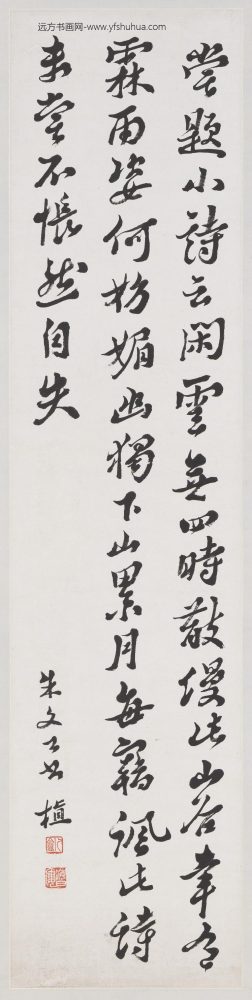 远方书画网-www.yfshuhua.com
嘗題小詩云閑雲無四時散漫此山谷幸乏
霖雨姿何妨媚幽獨下山累月每竊諷此詩
未嘗不悵然自失
朱文公